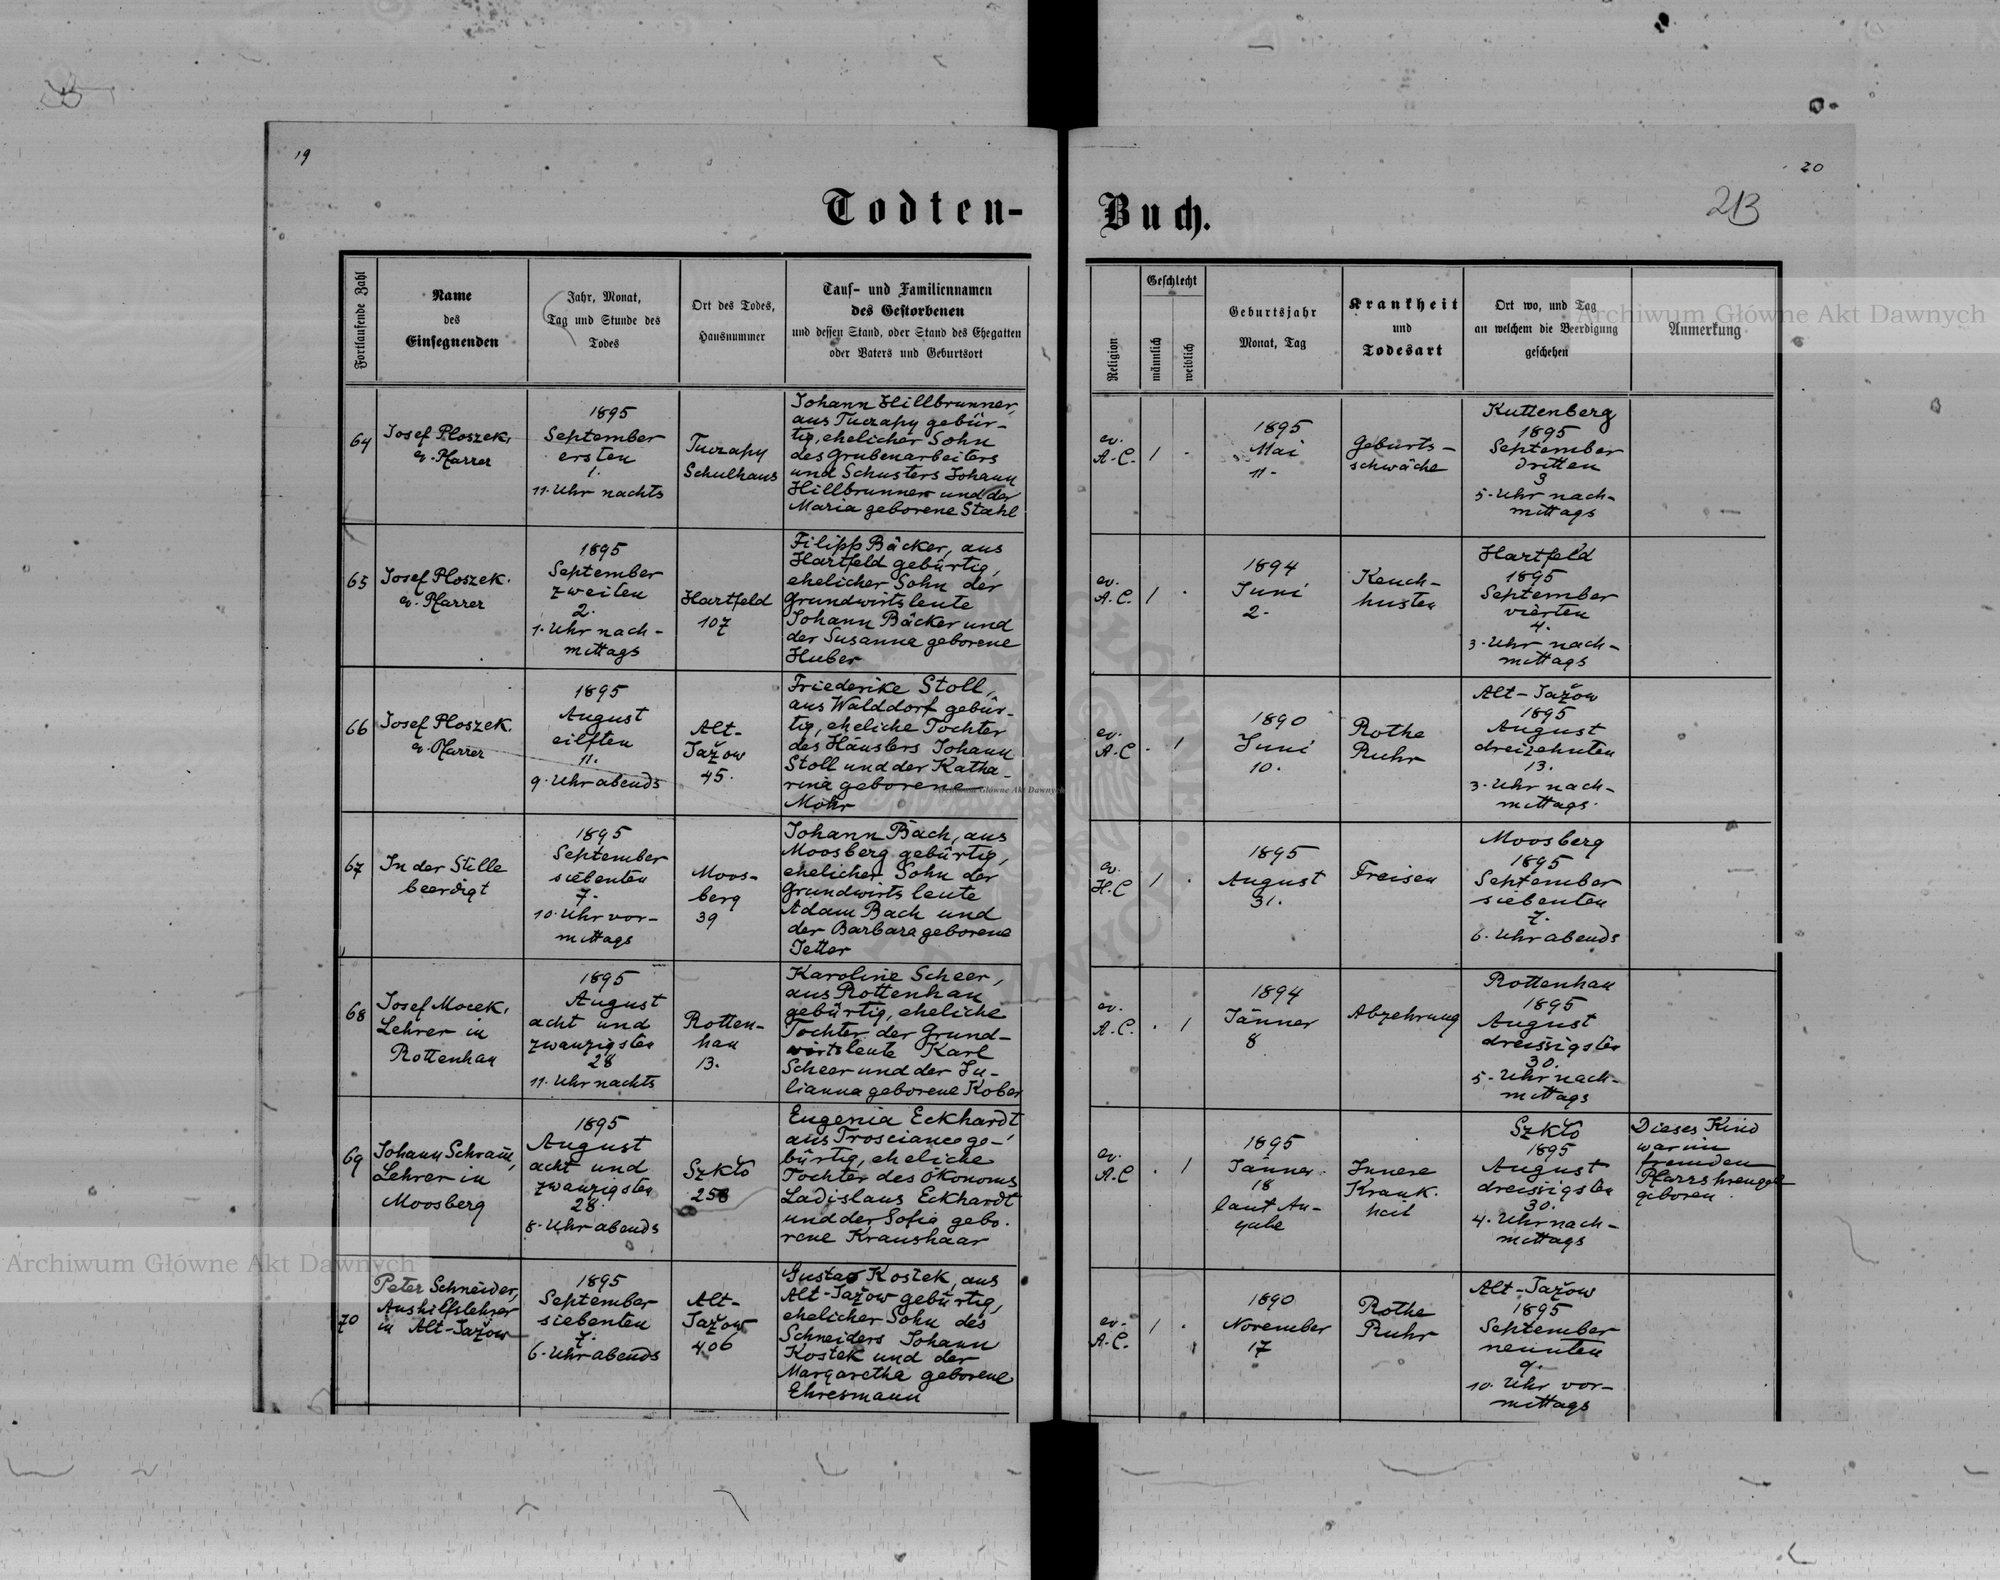 19
20
Todten-
Buch.
213
Fortlaufende Zahl
Name
des
Einsegnenden
Jahr, Monat,
Tag und Stunde des
Todes
Ort des Todes,
Hausnummer
Tauf- und Familiennamen
des Gestorbenen
und dessen Stand, oder Stand des Ehegatten
oder Vaters und Geburtsort
Religion
Geschlecht
männlich
weiblich
Geburtsjahr
Monat, Tag
Krankheit
und
Todesart
Ort wo, und Tag
an welchem die Beerdigung
geschehen
Anmerkung
64
Josef Ploszek,
ev. Pfarrer
1895
September
ersten
1.
11. Uhr nachts
Tuczapy
Schulhaus
Johann Hillbrunner,
aus Tuczapy gebür-
tig, ehelicher Sohn
des Grubenarbeiters
und Schusters Johann
Hillbrunner und der
Maria geborene Stahl
ev.
A.C.
1
1895
Mai
11.
Geburts-
schwäche
Kuttenberg
1895
September
dritten
3
5. Uhr nach-
mittags
65
Josef Ploszek.
ev. Pfarrer
1895
September
zweiten
2.
1. Uhr nach-
mittags
Hartfeld
107
Filipp Bäcker, aus
Hartfeld gebürtig,
ehelicher Sohn der
Grundwirtsleute
Johann Bäcker und
der Susanne geborene
Huber
ev.
A.C.
1
1894
Juni
2.
Keuch-
husten
Hartfeld
1895
September
vierten
4.
3. Uhr nach-
mittags
66
Josef Ploszek.
ev. Pfarrer
1895
August
eilften
11.
9. Uhr abends
Alt-
Jažow
45.
Friederike Stoll,
aus Walddorf gebür-
tig, eheliche Tochter
des Häuslers Johann
Stoll und der Katha-
rina geborene
Mohr
ev.
A.C
1
1890
Juni
10.
Rothe
Ruhr
Alt-Jažow
1895
August
dreizehnten
13.
3. Uhr nach-
mittags.
67
In der Stille
beerdigt
1895
September
siebenten
7.
10. Uhr vor-
mittags
Moos-
berg
39
Johann Bach, aus
Moosberg gebürtig,
ehelicher Sohn der
Grundwirtsleute
Adam Bach und
der Barbara geborene
Jetter
ev.
H.C
1
1895
August
31.
Freisen
Moosberg
1895
September
siebenten
7.
6. Uhr abends
68
Josef Mocek,
Lehrer in
Rottenhan
1895
August
acht und
zwanzigsten
28
11. Uhr nachts
Rotten-
han
13.
Karoline Scheer,
aus Rottenhan
gebürtig, eheliche
Tochter der Grund-
wirtsleute Karl
Scheer und der Ju-
lianna geborene Kober
ev.
A.C.
1
1894
Jänner
8
Abzehrung
Rottenhan
1895
August
dreissigsten
30.
5. Uhr nach-
mittags
69
Johann Schram,
Lehrer in
Moosberg
1895
August
acht und
zwanzigsten
28.
8. Uhr abends
Szkło
258
Eugenia Eckhardt
aus Trosciance ge-
bürtig, eheliche
Tochter des Ökonoms
Ladislaus Eckhardt
und der Sofie gebo-
rene Kraushaar
ev.
A.C
1
1895
Jänner
18
laut An-
gabe
Innere
Krank-
heit
Szkło
1895
August
dreissigsten
30.
4. Uhr nach-
mittags
Dieses Kind
war im
fremden
Pfarrsprengel
geboren
70
Peter Schneider,
Aushilfslehrer
in Alt-Jažow
1895
September
siebenten
7.
6. Uhr abends
Alt-
Jažow
406
Gustav Kostek, aus
Alt-Jažow gebürtig,
ehelicher Sohn des
Schneiders Johann
Kostek und der
Margaretha geborene
Ehresmann
ev.
A.C.
1
1890
November
17
Rothe
Ruhr
Alt-Jažow
1895
September
neunten
9.
10. Uhr vor-
mittags
Archiwum Główne Akt Dawnych
Archiwum Główne Akt Dawnych
Archiwum Główne Akt Dawnych